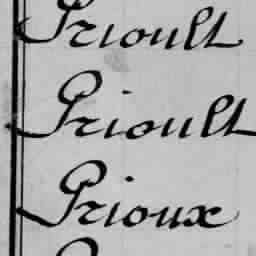 Prioult
Prioult
Prioux